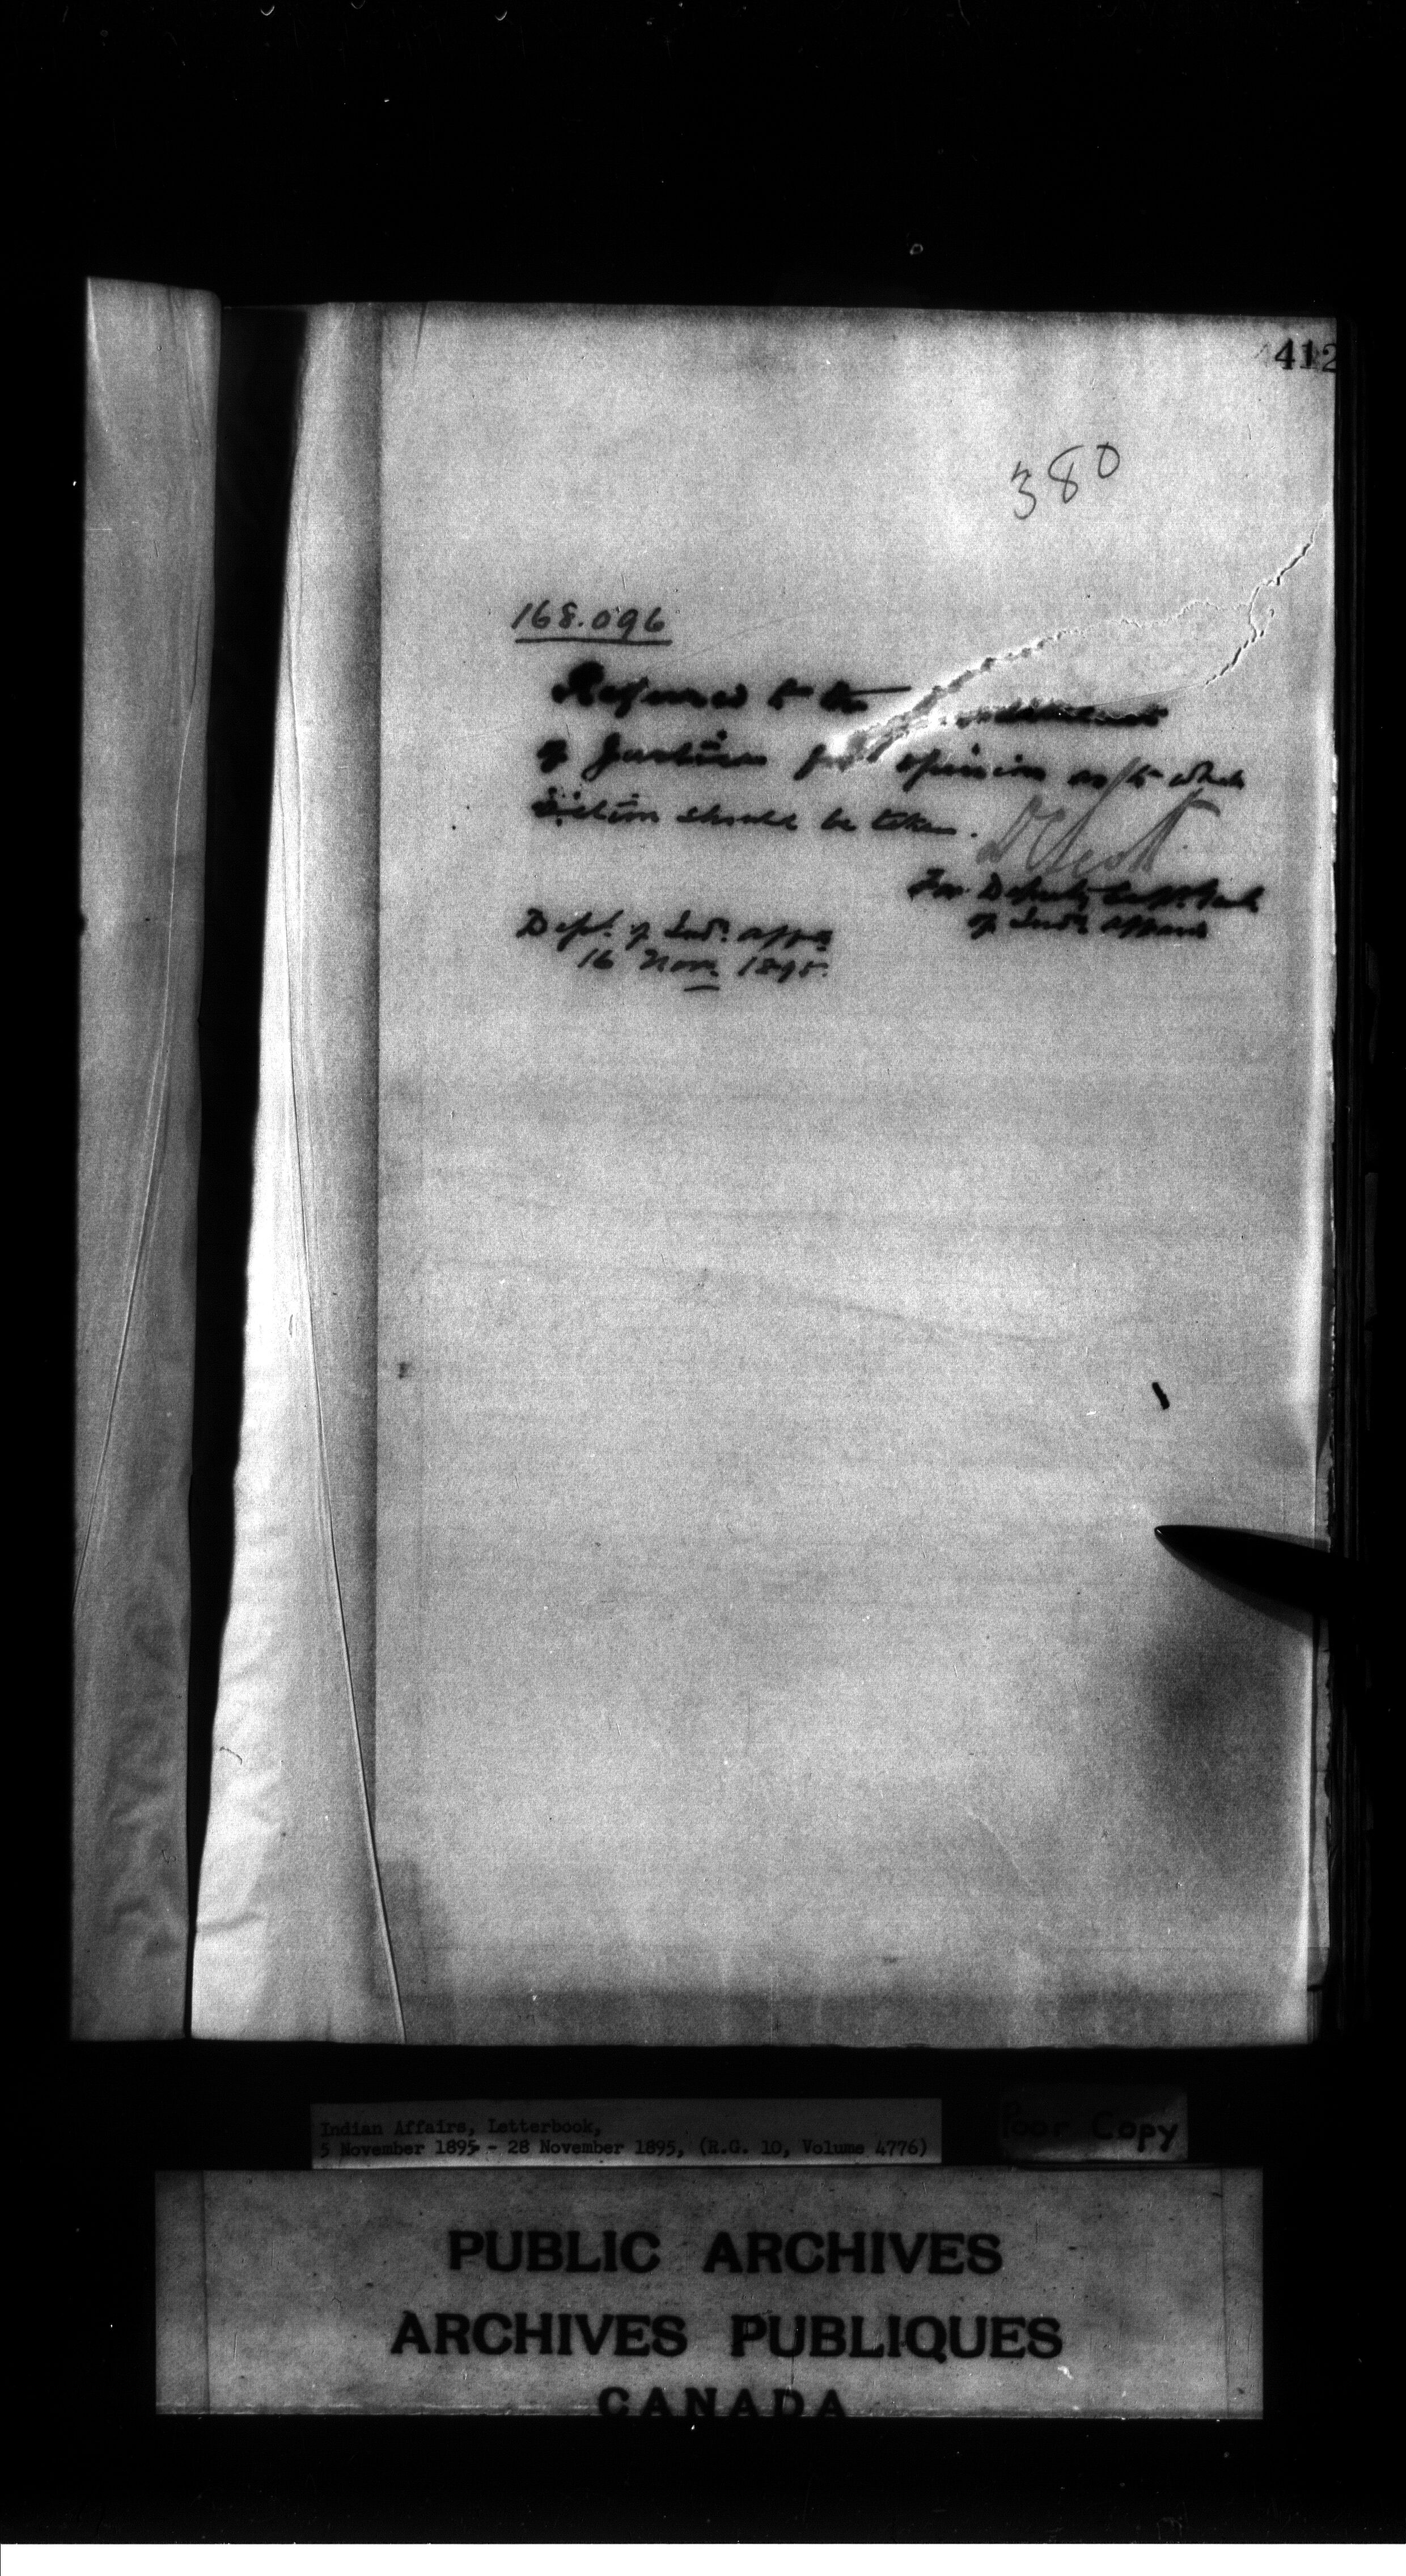 412
380
168.096
Referred to the
of Justice for opinion as to what
action should be taken.
D C Scott
For Deputy Supt. Genl.
of Indn Affairs
Dept. of Ind. Affrs
16 Nov. 1895.
Indian Affairs, Letterbook,
5 November 1895 - 28 November 1895, (R.G. 10, Volume 4776)
Poor Copy
PUBLIC ARCHIVES
ARCHIVES PUBLIQUES
CANADA